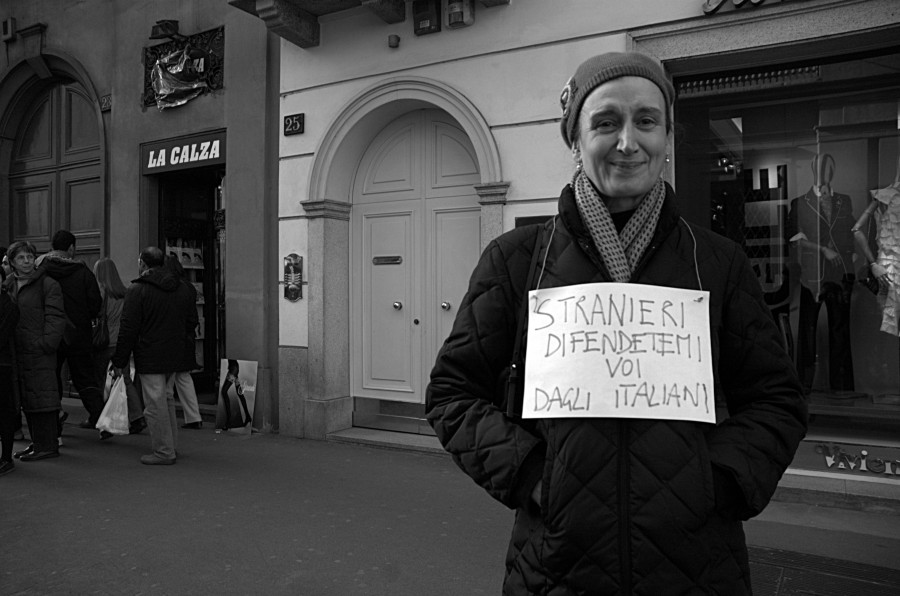 LA CALZA
25
"STRANIERI
DIFENDETEMI
VOI
DAGLI ITALIANI